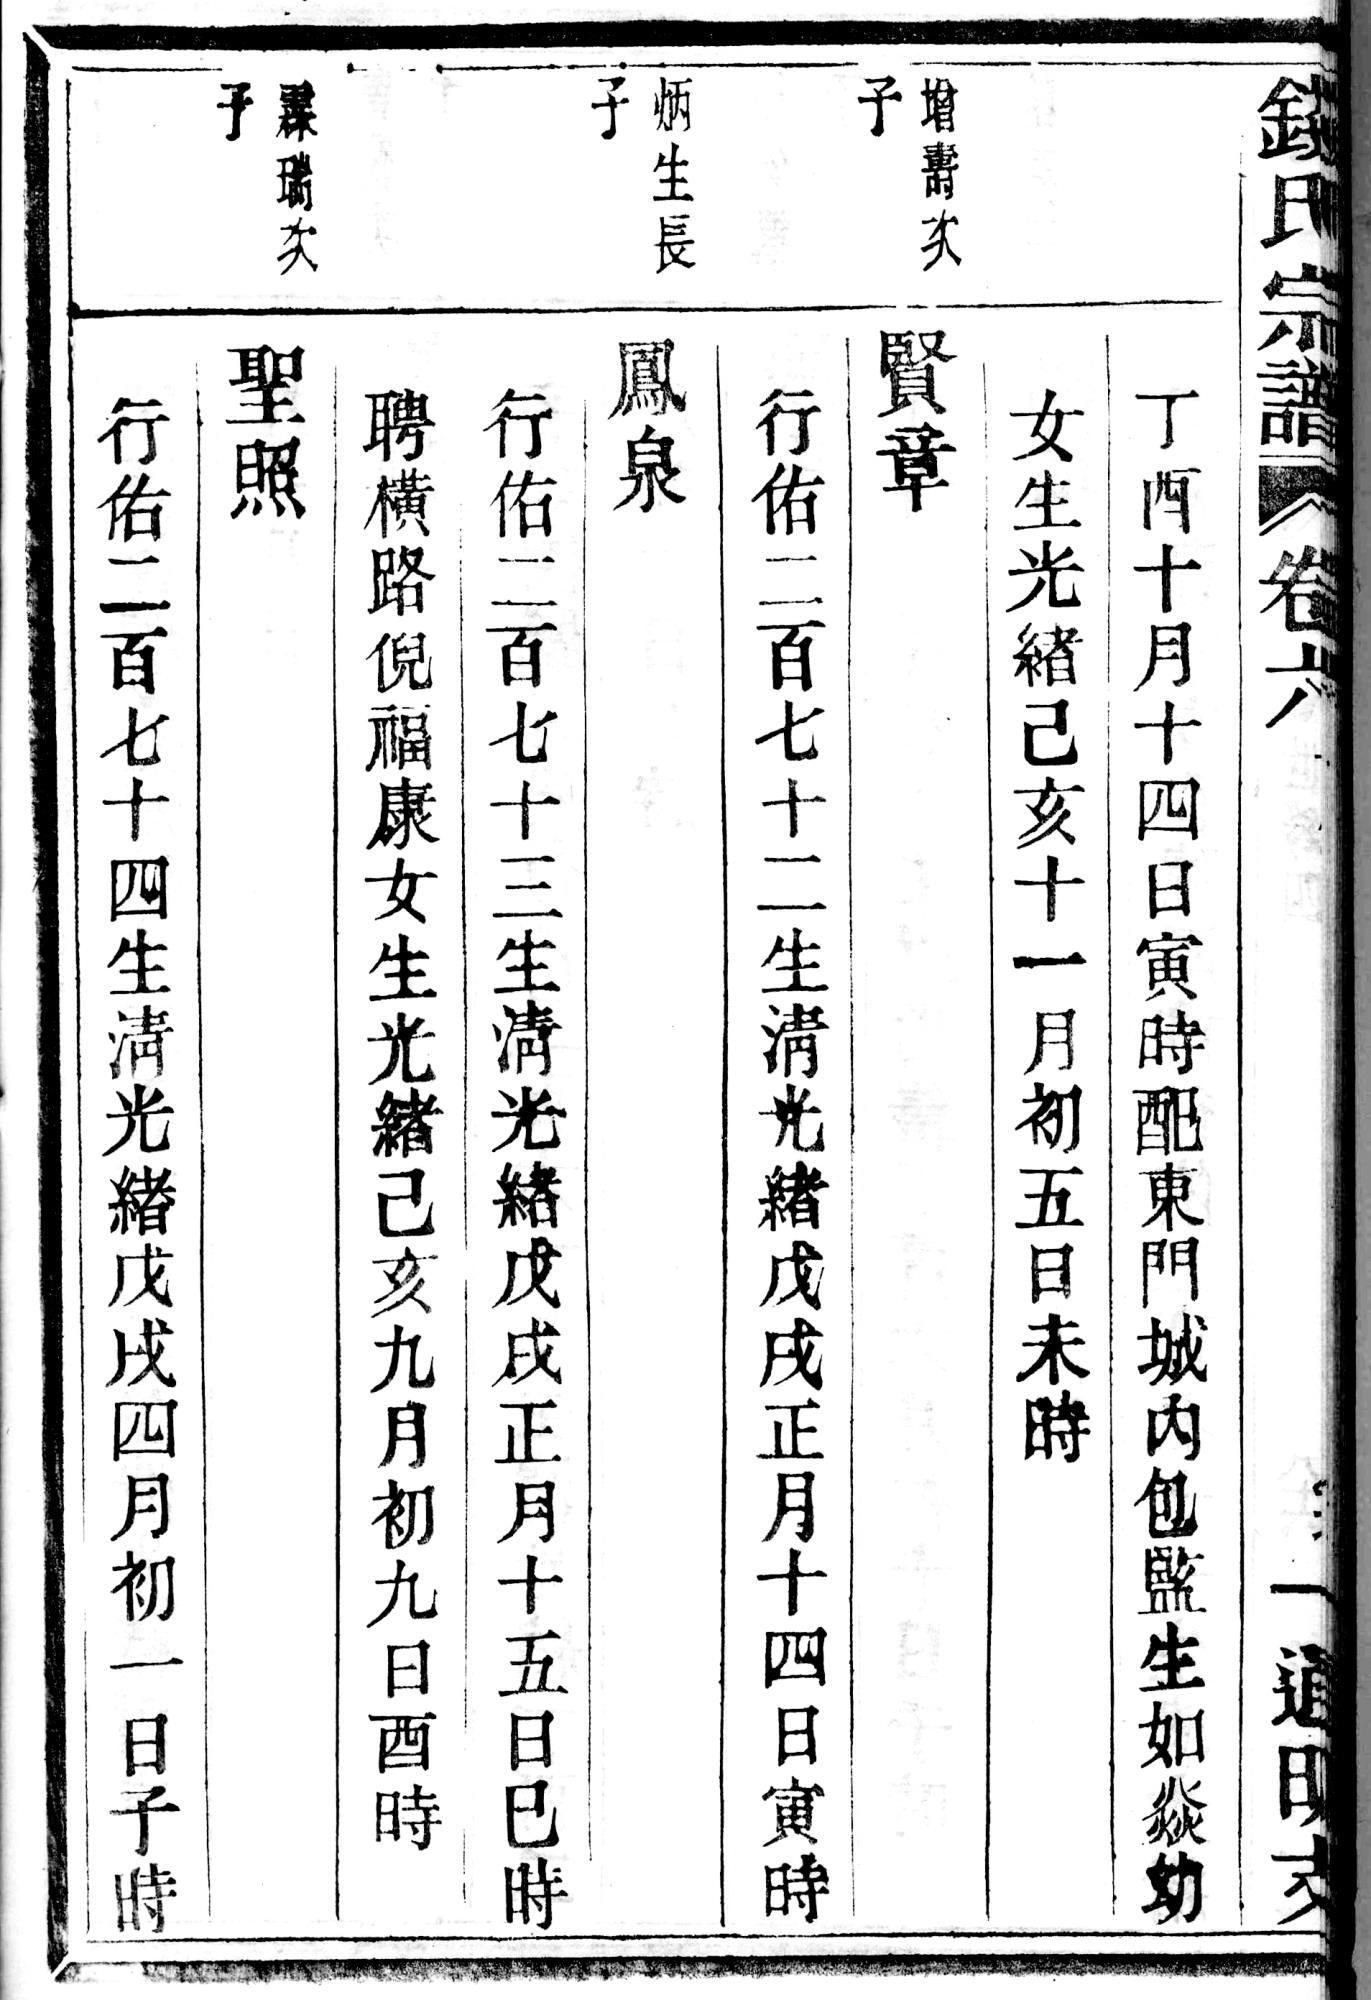 錢氏宗譜
卷六
丁酉十月十四日寅時配東門城內包監生如焱幼
女生光緒己亥十一月初五日未時
增壽次
子
賢章
行佑二百七十二生淸光緒戊戌正月十四日寅時
炳生長
子
鳳泉
行佑二百七十三生淸光緒戊戌正月十五日巳時
聘橫路倪福康女生光緒己亥九月初九日酉時
霖瑞次
子
聖照
行佑二百七十四生淸光緒戊戌四月初一日子時